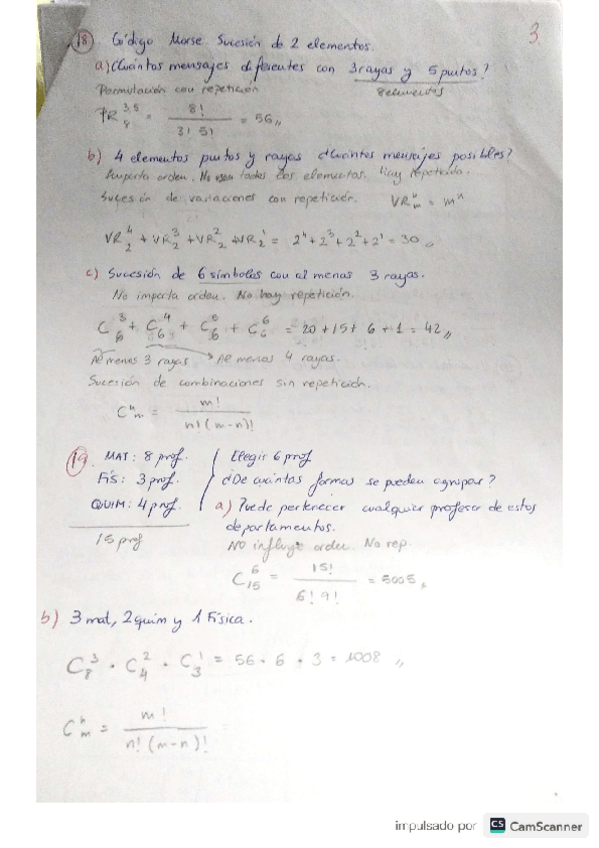 3
18 Código Morse Sucesión de 2 elementos.
a) ¿Cuántos mensajes diferentes con 3 rayas y 5 puntos?
Permutación con repetición 8 elementos
PR 8 3,5 = 8! / 3! 5! = 56,,
b) 4 elementos puntos y rayas ¿Cuantos mensajes posibles?
Importa orden. No usan todos los elementos. Hay repetición.
Sucesión de variaciones con repetición. VR m n = m^n
VR 2 4 + VR 2 3 + VR 2 2 + VR 2 1 = 2^4 + 2^3 + 2^2 + 2^1 = 30,,
c) Sucesión de 6 símbolos con al menos 3 rayas.
No importa orden. No hay repetición.
C 6 3 + C 6 4 + C 6 5 + C 6 6 = 20 + 15 + 6 + 1 = 42,,
Al menos 3 rayas → Al menos 4 rayas.
Sucesión de combinaciones sin repetición.
C m n = m! / n! (m-n)!
19. MAT: 8 prof. Elegir 6 prof
FÍS: 3 prof. ¿De cuántas formas se pueden agrupar?
QUIM: 4 prof. a) Puede pertenecer cualquier profesor de estos
departamentos.
15 prof
No influye orden. No rep.
C 15 6 = 15! / 6! 9! = 5005,,
b) 3 mat, 2 quim y 1 Física.
C 8 3 · C 4 2 · C 3 1 = 56 · 6 · 3 = 1008,,
C m n = m! / n! (m-n)!
impulsado por CS CamScanner